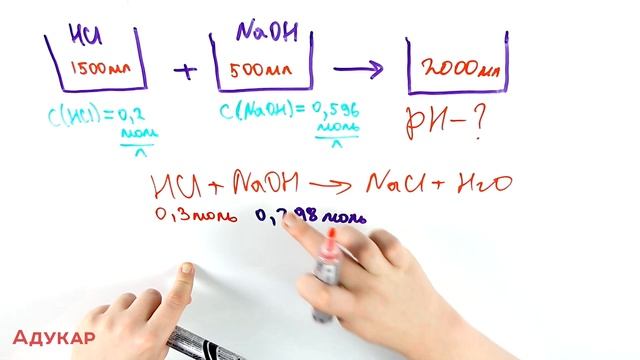 HCl NaOH
1500мл + 500мл → 2000мл
C(HCl)=0,2 моль/л C(NaOH)=0,596 моль/л pH-?
HCl + NaOH → NaCl + H2O
0,3моль 0,298моль
Адукар